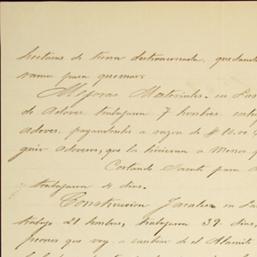 hectarea de tierra destroncada, quedando
rama para quemar.
Mejoras Materiales. en San
de adoves trabajaron 7 hombres, 
adoves, pagandoles a razon de $11.00
guir adoveros, que la hicieran a Menos
Cortando Sacate para
trabajaron 4 dias.
Construccion Jacales en La
trabajo 21 hombres, trabajaron 39 dias,
peones que voy a cambiar de el Alamito